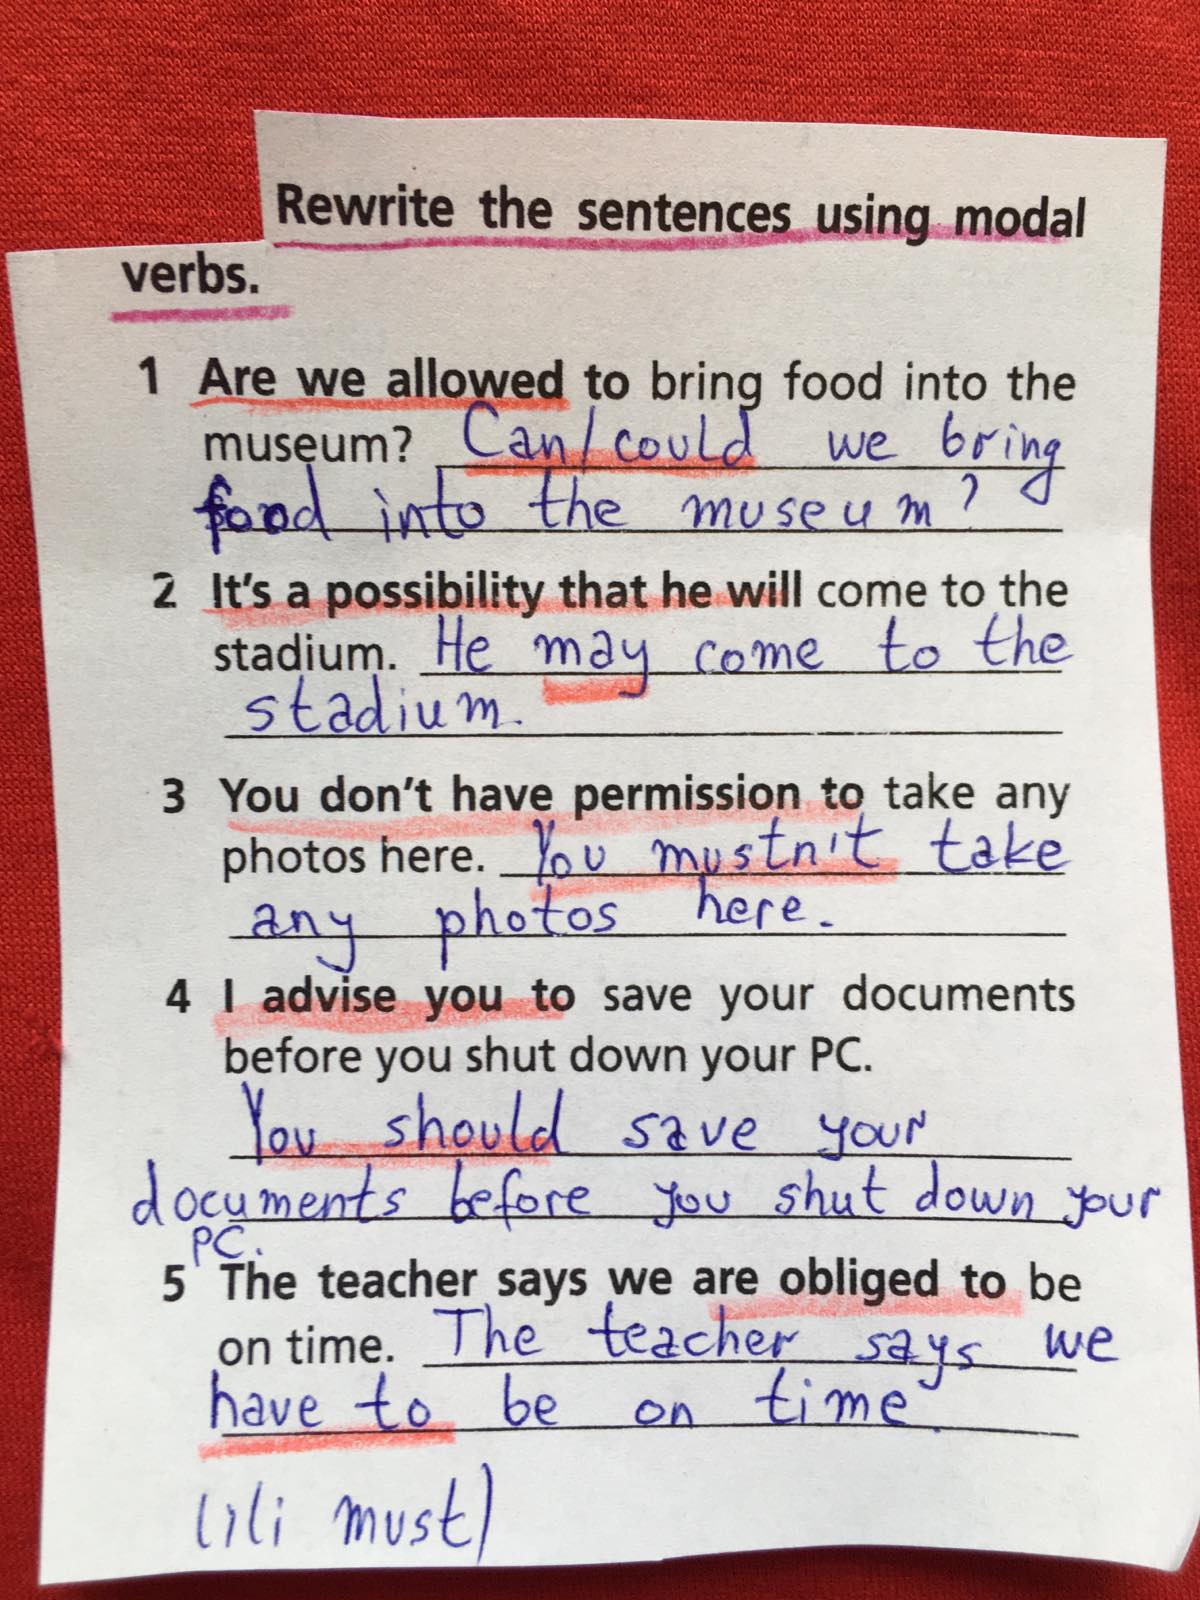 Rewrite the sentences using modal
verbs.
1 Are we allowed to bring food into the
museum? Can/could we bring
food into the museum?
2 It's a possibility that he will come to the
stadium. He may come to the
stadium.
3 You don't have permission to take any
photos here. You mustn't take
any photos here.
4 I advise you to save your documents
before you shut down your PC.
You should save your
documents before you shut down your
PC.
5 The teacher says we are obliged to be
on time. The teacher says we
have to be on time
(ili must)